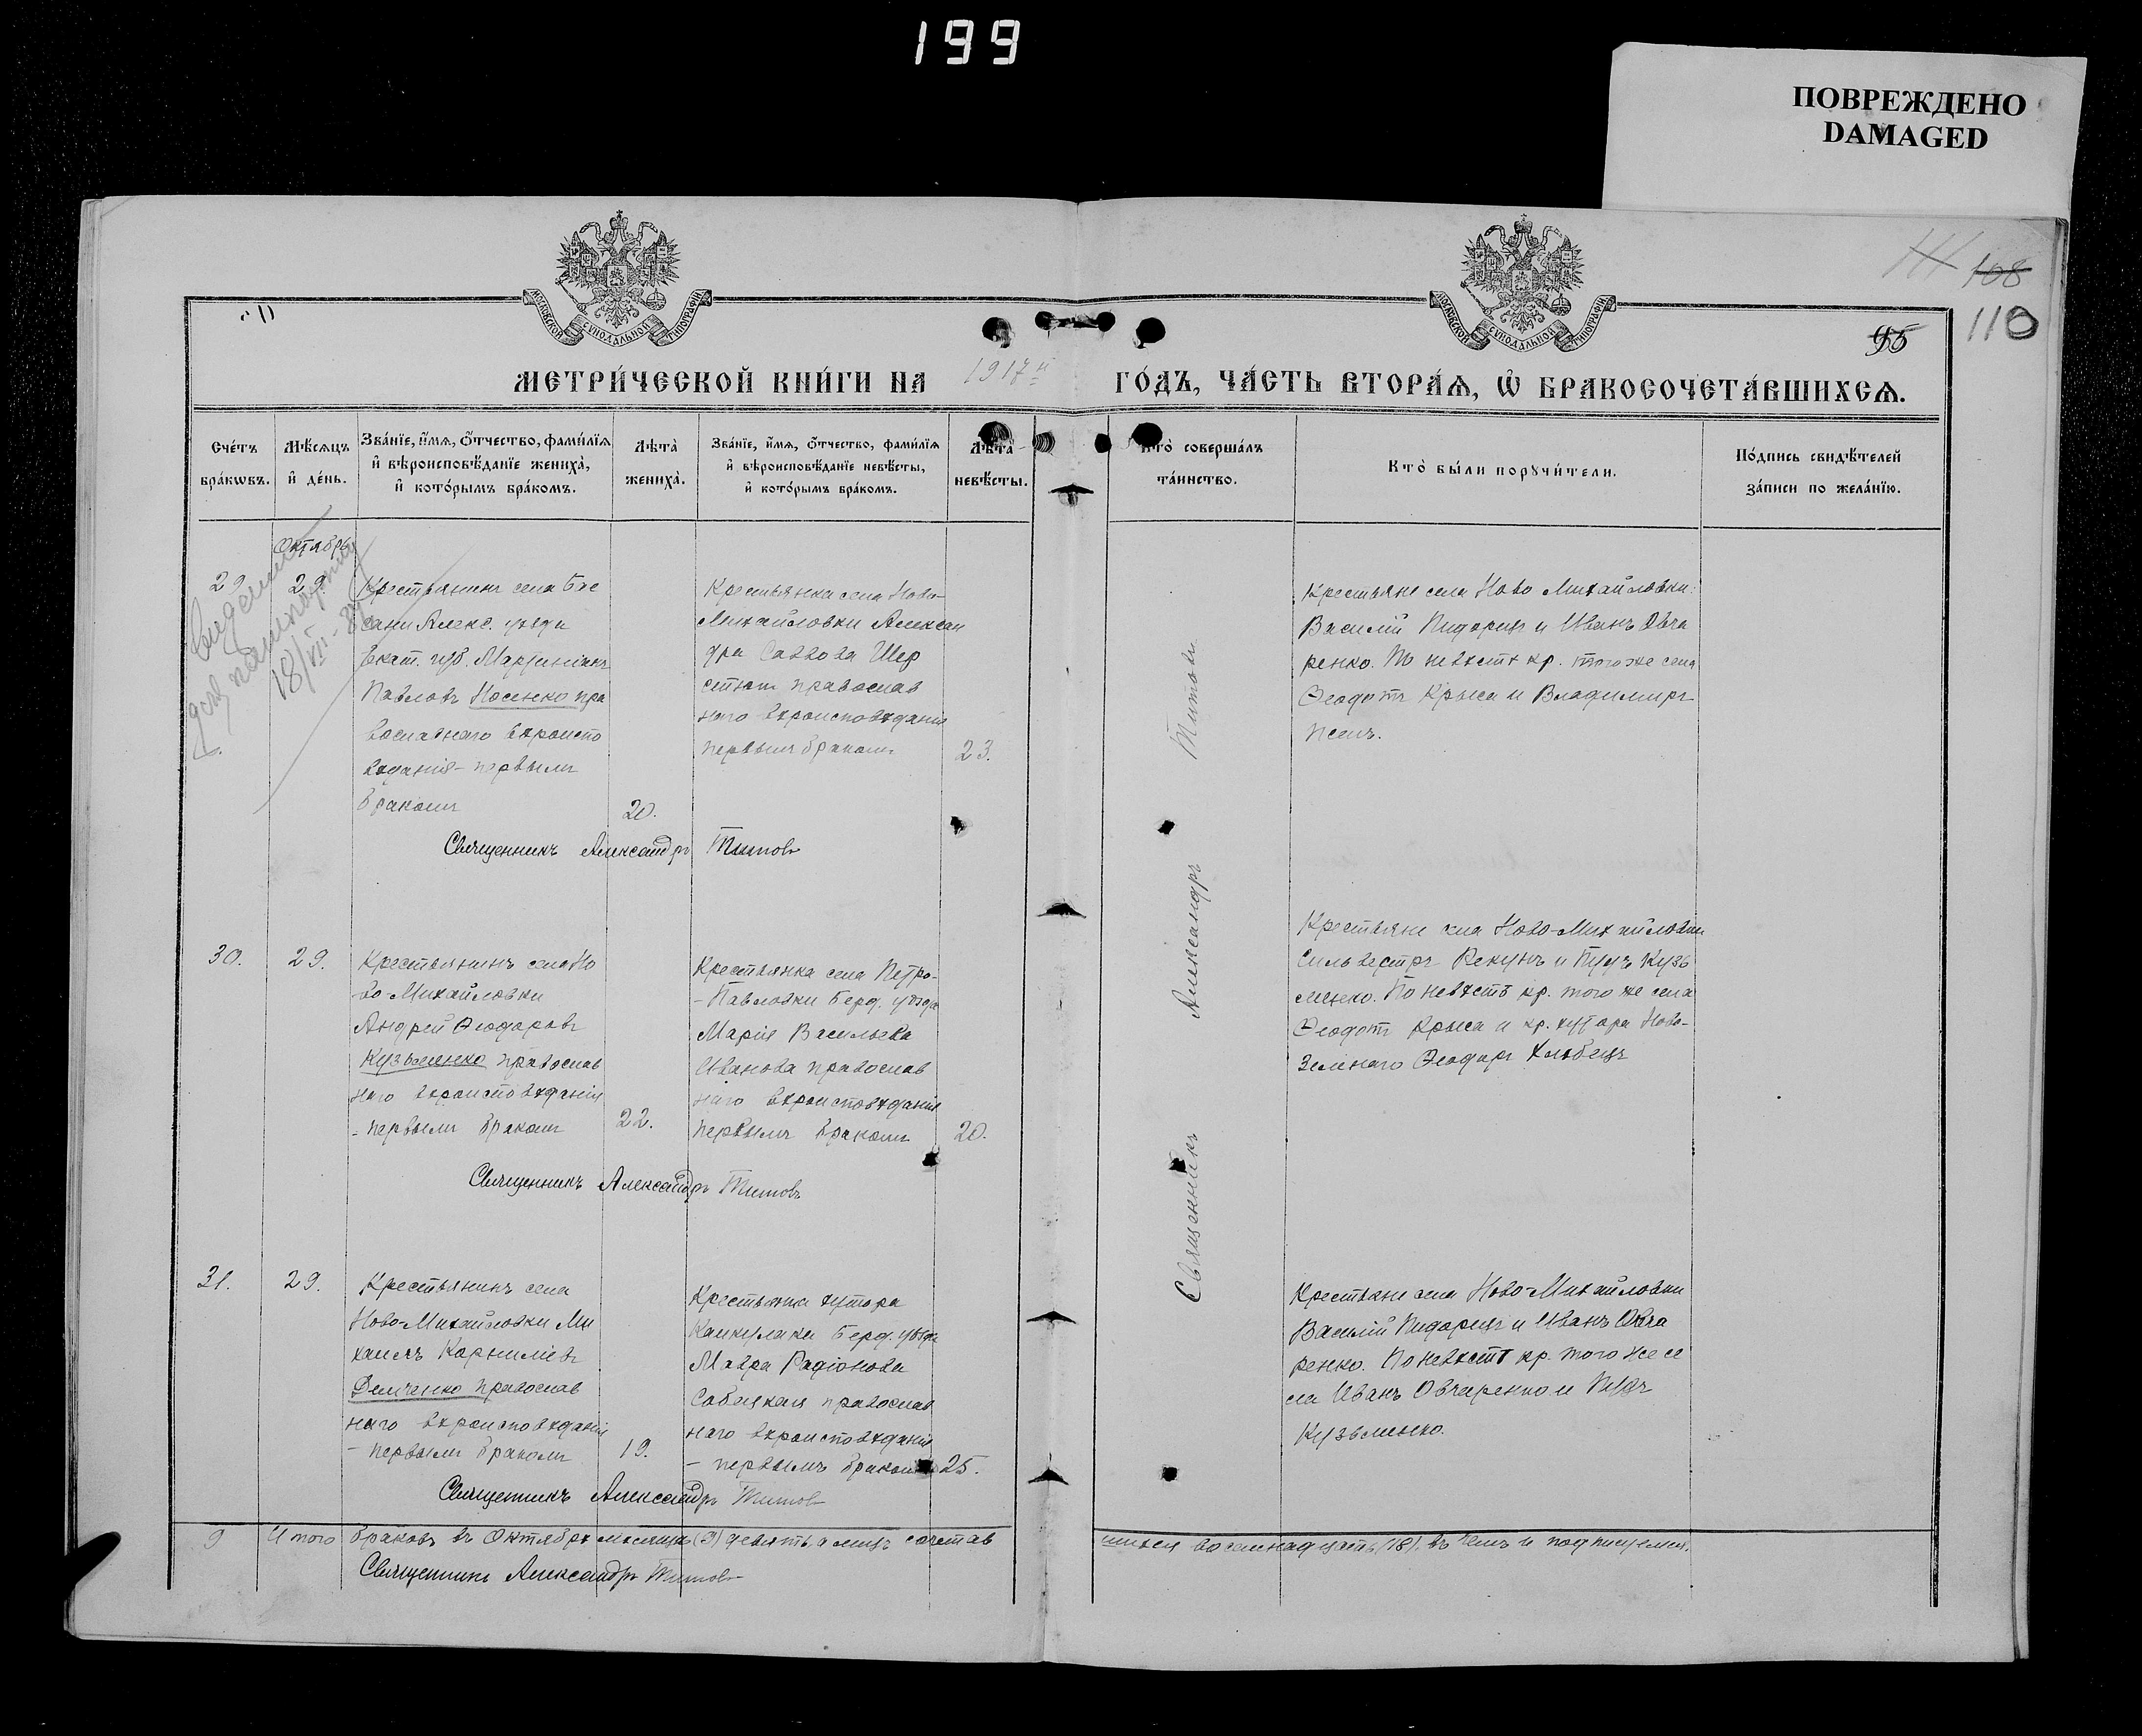 199
ПОВРЕЖДЕНО
DAMAGED
108
110
95
МОСКОВСКОЙ СУНОДАЛЬНОЙ ТИПОГРАФІИ
МОСКОВСКОЙ СУНОДАЛЬНОЙ ТИПОГРАФІИ
МЕТРИ́ЧЕСКОЙ КНИ́ГИ НА 1917й ГО́ДЪ, ЧА́СТЬ ВТОРА́Ѧ, Ѽ БРАКОСОЧЕТА́ВШИХСѦ.
Сче́тъ бра́кѡвъ.
Мѣ́сѧцъ и҆ де́нь.
Зва́нїе, и҆́мѧ, ѻ҆́тчество, фами́лїѧ
и҆ вѣроисповѣ́данїе жениха̀,
и҆ кото́рымъ бра́комъ.
Лѣ́та жениха̀.
Зва́нїе, и҆́мѧ, ѻ҆́тчество, фами́лїѧ
и҆ вѣроисповѣ́данїе невѣ́сты,
и҆ кото́рымъ бра́комъ.
Лѣ́та невѣ́сты.
Кто̀ соверша́лъ
та́инство.
Кто̀ бы́ли порꙋчи́тели.
По́дпись свидѣ́телей
за́писи по жела́нїю.
Октябрь
29
29.
Крестьянинъ села Бо
Алекс. уѣзда
Екат. губ. Мартиніанъ
Павловъ Носенко пра
вославнаго вѣроиспо
вѣданія - первымъ
бракомъ
20.
Крестьянка села Ново-
Михайловки Алексан
дра Саввова Шер
православ
наго вѣроисповѣданія
первымъ бракомъ
23.
Крестьяне села Ново Михайловки:
Василій Пидоринъ и Иванъ Овча
ренко. По невѣстѣ кр. того же села
Ѳеодотъ Крыса и Владиміръ
18/VII-
Священникъ Александръ Титовъ
30.
29.
Крестьянинъ села Но
во-Михайловки
Андрей Ѳеодоровъ
Кузьменко православ
наго вѣроисповѣданія
- первымъ бракомъ
22.
Крестьянка села Петро-
- Павловки Берд. уѣзда
Марія Васильева
Иванова православ
наго вѣроисповѣданія
первымъ бракомъ
20.
Крестьяне села Ново-Михайловки
Сильвестръ Векунъ и Пудъ Кузь
менко. По невѣстѣ кр. того же села
Ѳеодотъ Крыса и кр. хутора Ново-
Ѳеодоръ
Священникъ Александръ Титовъ
31.
29.
Крестьянинъ села
Ново-Михайловки Ми
хаилъ Корниліевъ
Демченко православ
наго вѣроисповѣданія
- первымъ бракомъ
19.
Крестьянка хутора
Берд. уѣзда
Мавра Радіонова
Собацкая православ
наго вѣроисповѣданія
- первымъ бракомъ
25.
Крестьяне села Ново-Михайловки
Василій Пидоринъ и Иванъ Овча
ренко. По невѣстѣ кр. того же се
ла Иванъ Овчаренко и Пудъ
Кузьменко.
Священникъ Александръ Титовъ
Священникъ Александръ Титовъ
9 Итого браковъ въ Октябрѣ мѣсяцѣ (9) девять, а лицъ сочетав
шихся восемнадцать (18). въ чемъ и подписуемся.
Священникъ Александръ Титовъ